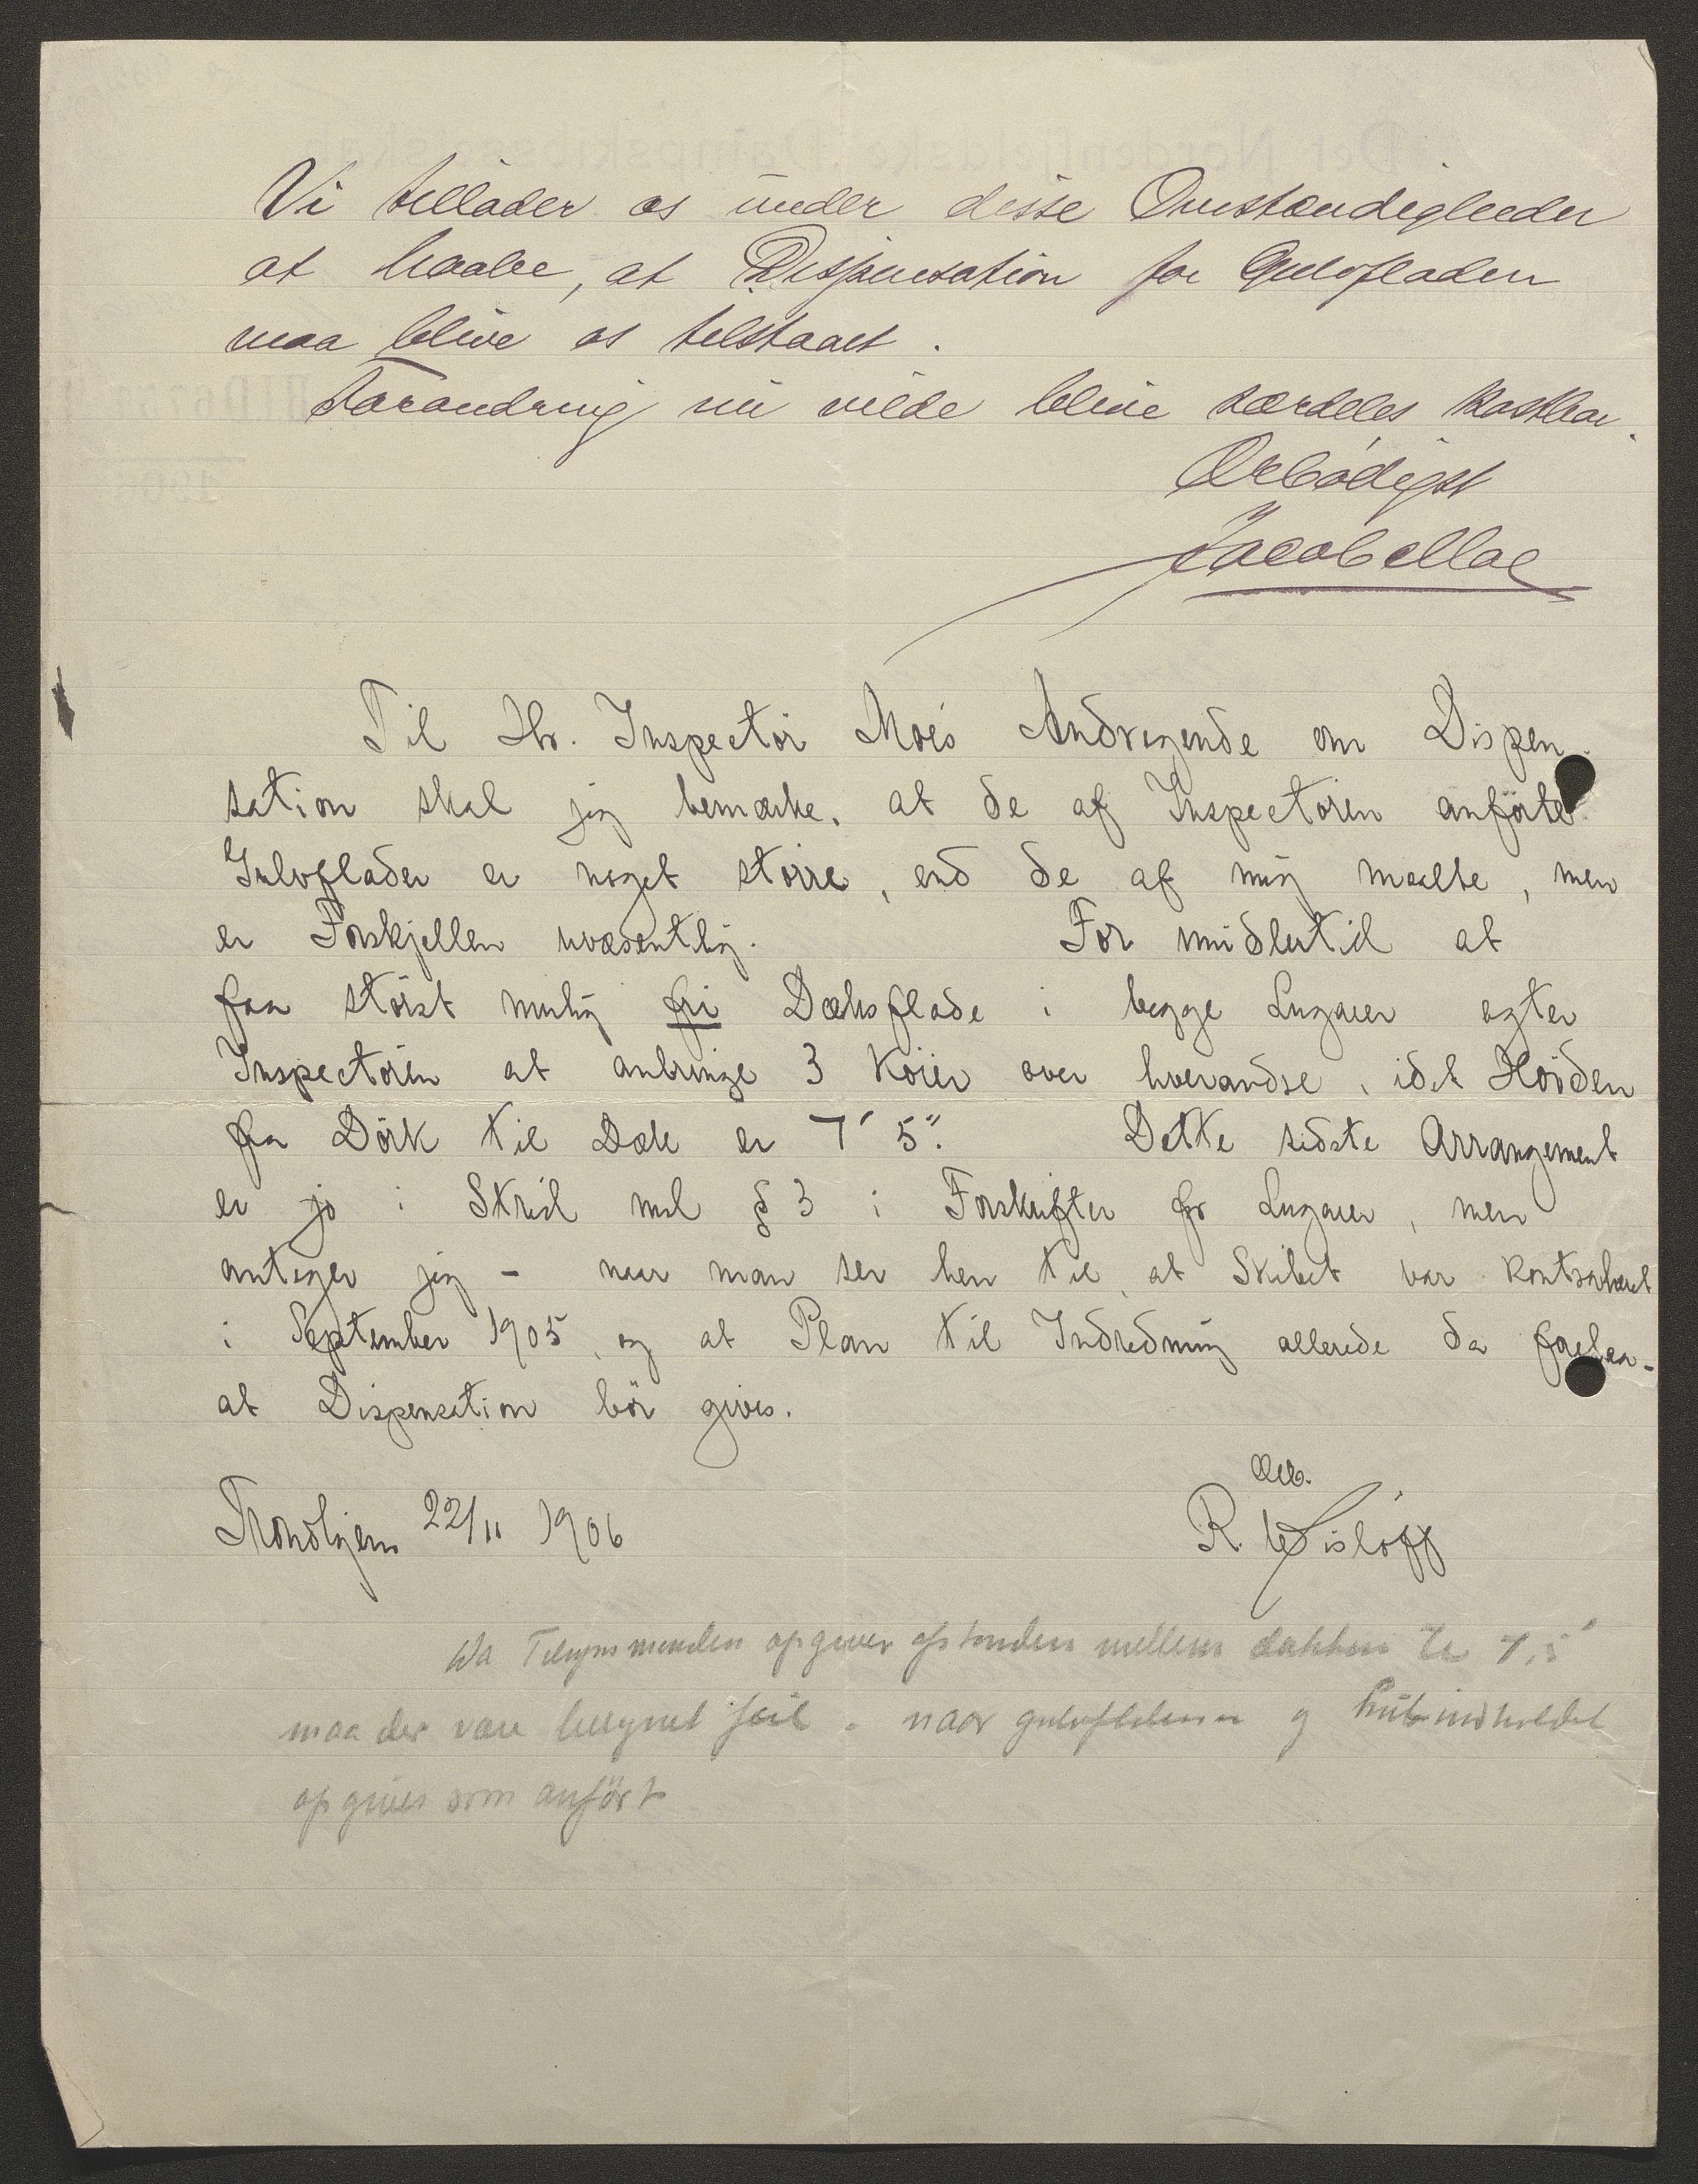 Vi tillader os under disse Omstændigheder
at haabe, at Dispensation for Gulvfladen
maa blive os tilstaaet.
Forandring nu vilde blive særdeles kostbar.
Ærbødigst
Jacob Moe
Til Hr. Inspectör Moes Andragende om Dispen-
sation skal jeg bemærke, at de af Inspectören anförte
Gulvflader er noget större, end de af mig maalte, men
er Forskjellen uvæsentlig. For imidlertid at
faa störst mulig fri Dæksflade i begge Lugarer agter
Inspectören at anbringe 3 Köier over hverandre, idet Höiden
fra Dörk til Dæk er 7' 5". Dette sidste Arrangement
er jo i Strid med § 3 i Forskrifter for Lugarer, men
antager jeg - naar man ser hen til, at Skibet var kontraheret
i September 1905, og at Plan til Indredning allerede da forelaa -
at Dispensation bör gives.
Trondhjem 22/11 1906
Ærb.
R.
Da Tilsynsmanden opgiver afstanden mellem dækkene til 7,5'
maa der være beregnet feil. naar gulvfladerne og kubikindholdet
opgives som anfört